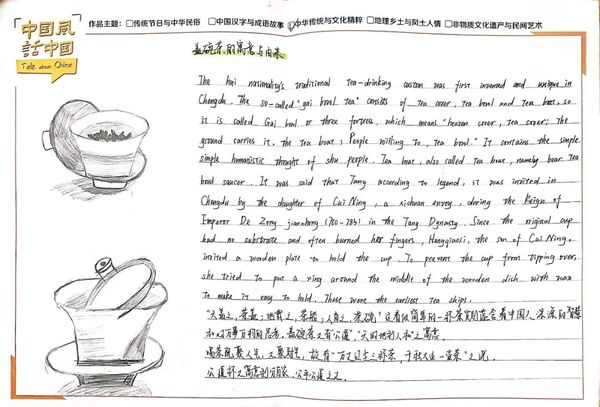 中国风
话中国
Talk about China
作品主题： □传统节日与中华民俗 □中国汉字与成语故事 ☑中华传统与文化精粹 □地理乡土与风土人情 □非物质文化遗产与民间艺术
盖碗茶的寓意与由来
The hui nationality's traditional tea-drinking custom was first invented and unique in
Chengdu. The so-called "gai bowl tea" consists of tea cover, tea bowl and tea boat, so
it is called Gai bowl or three fortress, which means "heaven cover, tea cover; The
ground carries it, the tea boat; People willing to, tea bowl." It contains the simple
simple humanistic thought of shu people. Tea boat, also called tea boat, namely boar tea
bowl saucer. It was said that Tang according to legend, it was invited in
Chengdu by the daughter of Cui Ning, a xichuan envoy, during the Reign of
Emperor De Zong jianzhong (780-784) in the Tang Dynasty. Since the original cup
had no substrate and often burned her fingers, Hangqiaosi, the son of Cui Ning,
invited a wooden plate to hold the cup. To prevent the cup from tipping over,
she tried to put a ring around the middle of the wooden dish with wax
to make it easy to hold. These were the earliest tea ships.
"天盖之，茶盖；地载之，茶船；人育之，茶碗。"这看似简单的一杯茶实则蕴含着中国人深深的智慧
和对万事万物的思考。盖碗茶又有公道""天时地利人和"之寓意。
喝茶既聚人气，又聚财气，故有"百丈红尘三杯茶，千秋大业一壶茶"之说。
公道杯又寓意